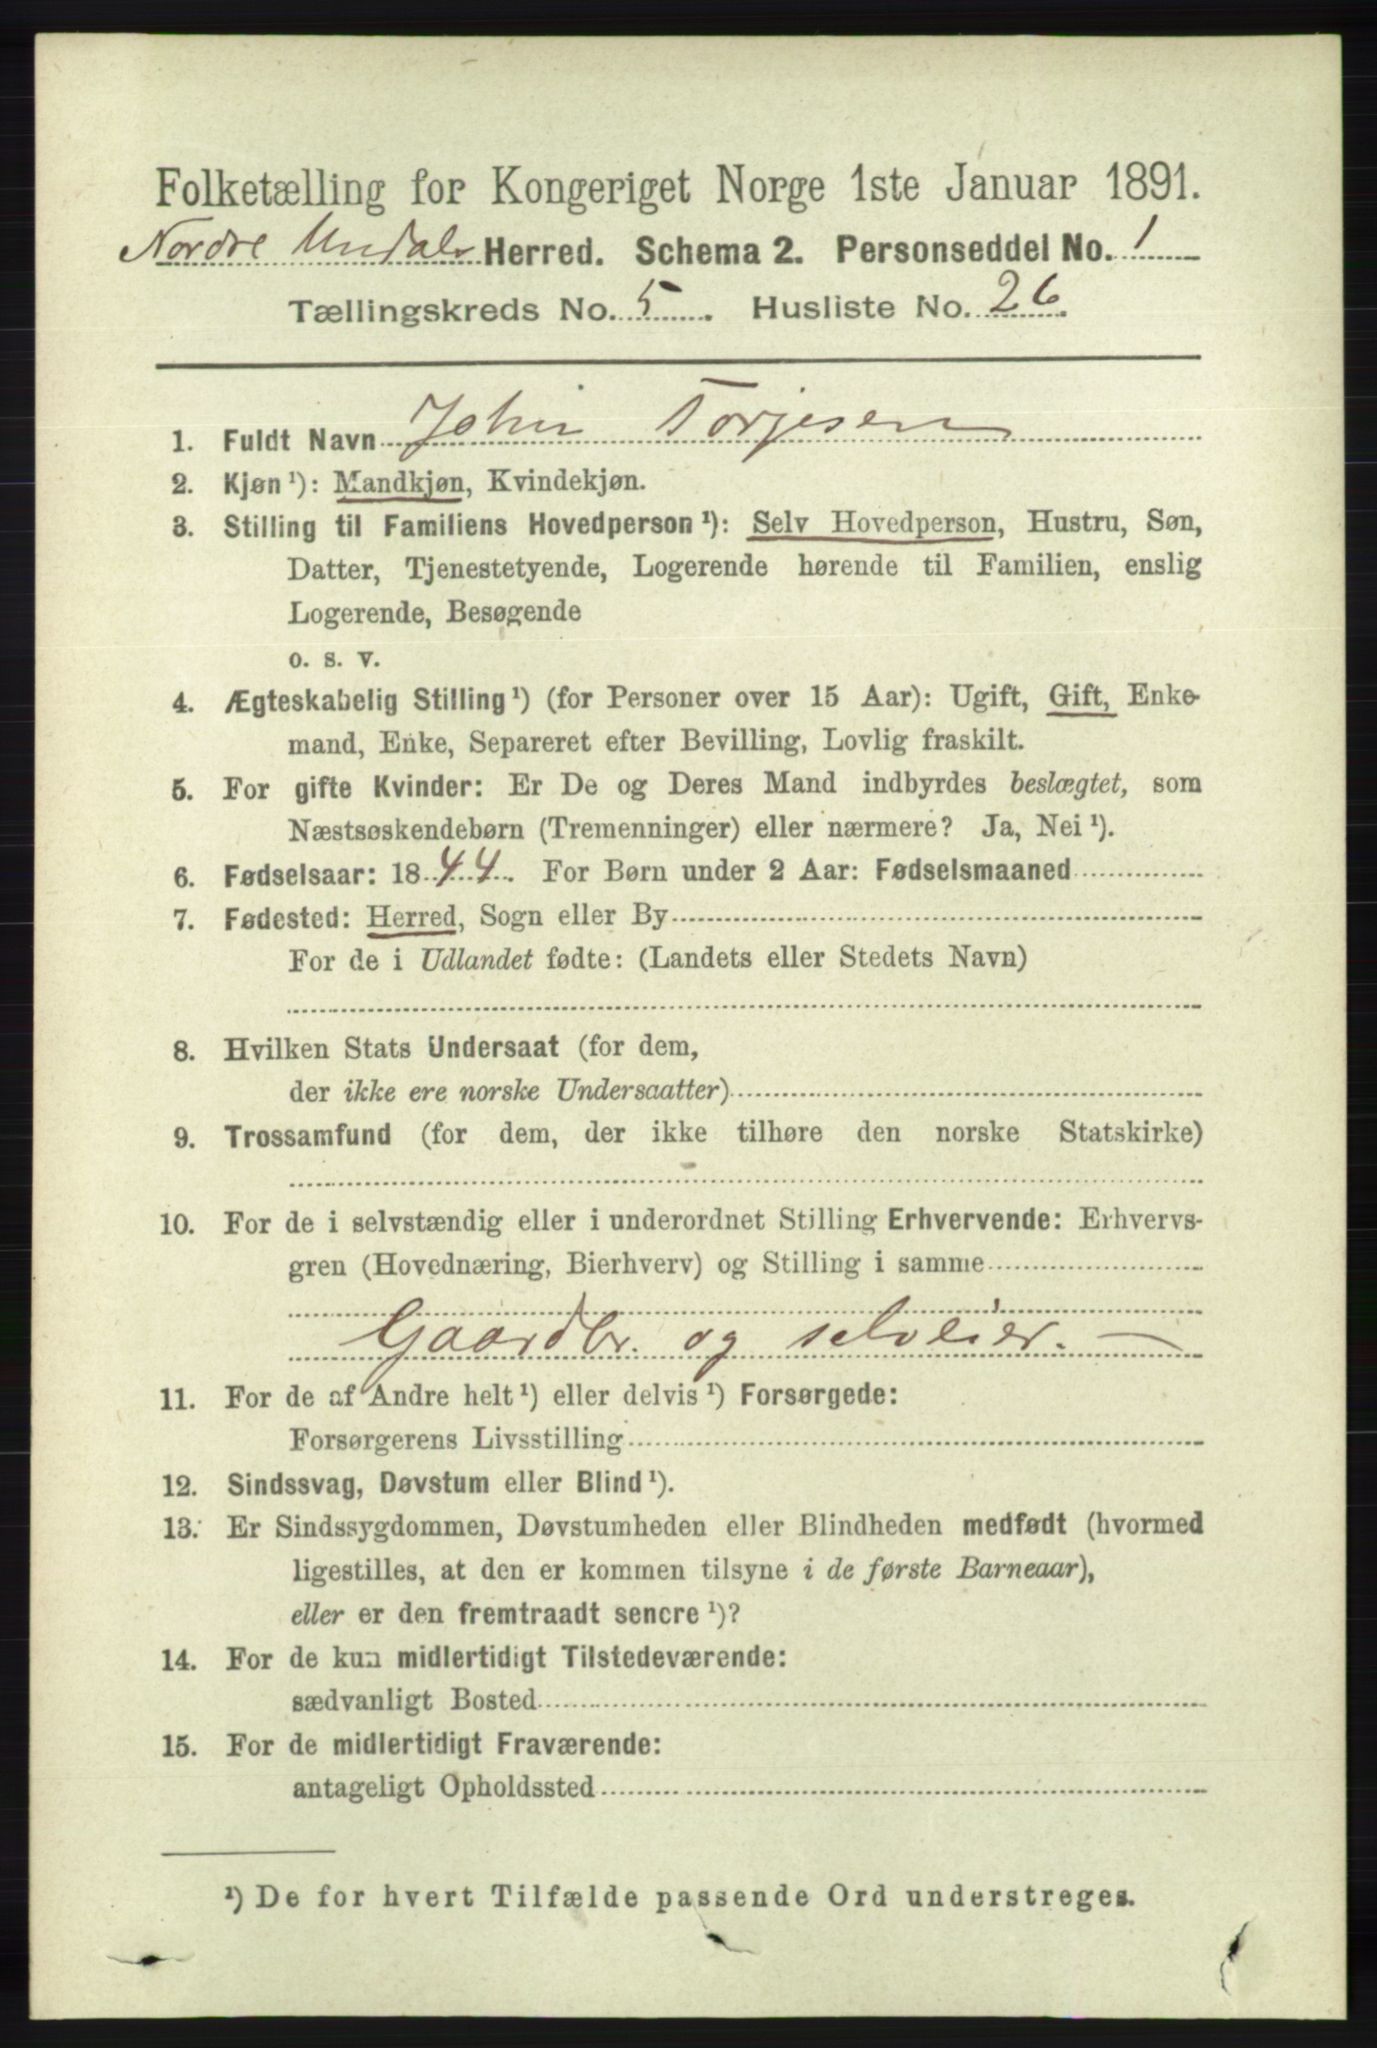 Folketælling for Kongeriget Norge 1ste Januar 1891.
Nordre Undals Herred. Schema 2. Personseddel No. 1
Tællingskreds No. 5. Husliste No. 26.
1. Fuldt Navn John Torjesen
2. Kjøn ¹): Mandkjøn, Kvindekjøn.
3. Stilling til Familiens Hovedperson ¹): Selv Hovedperson, Hustru, Søn,
Datter, Tjenestetyende, Logerende hørende til Familien, enslig
Logerende, Besøgende
o. s. v.
4. Ægteskabelig Stilling ¹) (for Personer over 15 Aar): Ugift, Gift, Enke-
mand, Enke, Separeret efter Bevilling, Lovlig fraskilt.
5. For gifte Kvinder: Er De og Deres Mand indbyrdes beslægtet, som
Næstsøskendebørn (Tremenninger) eller nærmere? Ja, Nei ¹).
6. Fødselsaar: 1844. For Børn under 2 Aar: Fødselsmaaned
7. Fødested: Herred, Sogn eller By
For de i Udlandet fødte: (Landets eller Stedets Navn)
8. Hvilken Stats Undersaat (for dem,
der ikke ere norske Undersaatter)
9. Trossamfund (for dem, der ikke tilhøre den norske Statskirke)
10. For de i selvstændig eller i underordnet Stilling Erhvervende: Erhvervs-
gren (Hovednæring, Bierhverv) og Stilling i samme
Gaardbr. og selveier. —
11. For de af Andre helt ¹) eller delvis ¹) Forsørgede:
Forsørgerens Livsstilling
12. Sindssvag, Døvstum eller Blind ¹).
13. Er Sindssygdommen, Døvstumheden eller Blindheden medfødt (hvormed
ligestilles, at den er kommen tilsyne i de første Barneaar),
eller er den fremtraadt sencre ¹)?
14. For de kun midlertidigt Tilstedeværende:
sædvanligt Bosted
15. For de midlertidigt Fraværende:
antageligt Opholdssted
¹) De for hvert Tilfælde passende Ord understreges.